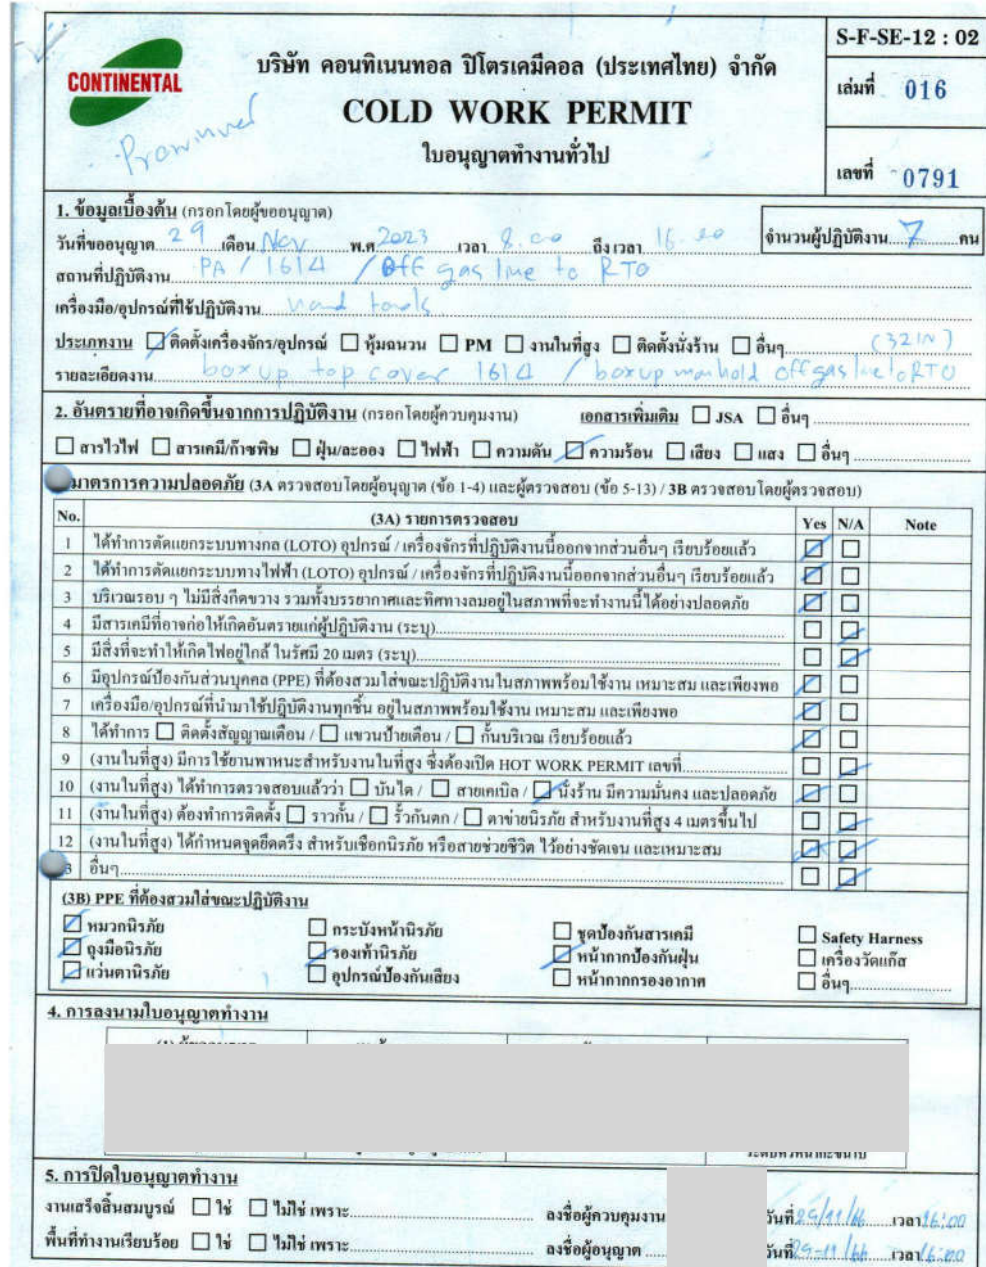 S-F-SE-12 : 02
CONTINENTAL
บริษัท คอนทิเนนทอล ปิโตรเคมีคอล (ประเทศไทย) จำกัด
เล่มที่ 016
COLD WORK PERMIT
ใบอนุญาตทำงานทั่วไป
เลขที่ 0791
1. ข้อมูลเบื้องต้น (กรอกโดยผู้ขออนุญาต)
วันที่ขออนุญาต 29 เดือน Nov พ.ศ 2023 เวลา 8.00 ถึงเวลา 16.00 จำนวนผู้ปฏิบัติงาน 7 คน
สถานที่ปฏิบัติงาน PA / 1614 / Off gas line to RTO
เครื่องมือ/อุปกรณ์ที่ใช้ปฏิบัติงาน hand tools
ประเภทงาน ติดตั้งเครื่องจักร/อุปกรณ์ หุ้มฉนวน PM งานในที่สูง ติดตั้งนั่งร้าน อื่นๆ (321N)
รายละเอียดงาน box up top cover 1614 / boxup manhold offgas line to RTO
2. อันตรายที่อาจเกิดขึ้นจากการปฏิบัติงาน (กรอกโดยผู้ควบคุมงาน) เอกสารเพิ่มเติม JSA อื่นๆ
สารไวไฟ สารเคมี/ก๊าซพิษ ฝุ่น/ละออง ไฟฟ้า ความดัน ความร้อน เสียง แสง อื่นๆ
มาตรการความปลอดภัย (3A ตรวจสอบโดยผู้อนุญาต (ข้อ 1-4) และผู้ตรวจสอบ (ข้อ 5-13) / 3B ตรวจสอบโดยผู้ตรวจสอบ)
No. (3A) รายการตรวจสอบ Yes N/A Note
1 ได้ทำการตัดแยกระบบทางกล (LOTO) อุปกรณ์ / เครื่องจักรที่ปฏิบัติงานนี้ออกจากส่วนอื่นๆ เรียบร้อยแล้ว
2 ได้ทำการตัดแยกระบบทางไฟฟ้า (LOTO) อุปกรณ์ / เครื่องจักรที่ปฏิบัติงานนี้ออกจากส่วนอื่นๆ เรียบร้อยแล้ว
3 บริเวณรอบ ๆ ไม่มีสิ่งกีดขวาง รวมทั้งบรรยากาศและทิศทางลมอยู่ในสภาพที่จะทำงานนี้ได้อย่างปลอดภัย
4 มีสารเคมีที่อาจก่อให้เกิดอันตรายแก่ผู้ปฏิบัติงาน (ระบุ)
5 มีสิ่งที่จะทำให้เกิดไฟอยู่ใกล้ ในรัศมี 20 เมตร (ระบุ)
6 มีอุปกรณ์ป้องกันส่วนบุคคล (PPE) ที่ต้องสวมใส่ขณะปฏิบัติงานในสภาพพร้อมใช้งาน เหมาะสม และเพียงพอ
7 เครื่องมือ/อุปกรณ์ที่นำมาใช้ปฏิบัติงานทุกชิ้น อยู่ในสภาพพร้อมใช้งาน เหมาะสม และเพียงพอ
8 ได้ทำการ ติดตั้งสัญญาณเตือน / แขวนป้ายเตือน / กั้นบริเวณ เรียบร้อยแล้ว
9 (งานในที่สูง) มีการใช้ยานพาหนะสำหรับงานในที่สูง ซึ่งต้องเปิด HOT WORK PERMIT เลขที่
10 (งานในที่สูง) ได้ทำการตรวจสอบแล้วว่า บันได / สายเคเบิล / นั่งร้าน มีความมั่นคง และปลอดภัย
11 (งานในที่สูง) ต้องทำการติดตั้ง ราวกั้น / รั้วกันตก / ตาข่ายนิรภัย สำหรับงานที่สูง 4 เมตรขึ้นไป
12 (งานในที่สูง) ได้กำหนดจุดยึดตรึง สำหรับเชือกนิรภัย หรือสายช่วยชีวิต ไว้อย่างชัดเจน และเหมาะสม
3 อื่นๆ
(3B) PPE ที่ต้องสวมใส่ขณะปฏิบัติงาน
หมวกนิรภัย กระบังหน้านิรภัย ชุดป้องกันสารเคมี Safety Harness
ถุงมือนิรภัย รองเท้านิรภัย หน้ากากป้องกันฝุ่น เครื่องวัดแก๊ส
แว่นตานิรภัย อุปกรณ์ป้องกันเสียง หน้ากากกรองอากาศ อื่นๆ
4. การลงนามใบอนุญาตทำงาน
5. การปิดใบอนุญาตทำงาน
งานเสร็จสิ้นสมบูรณ์ ใช่ ไม่ใช่ เพราะ ลงชื่อผู้ควบคุมงาน วันที่ 29/11/66 เวลา 16:00
พื้นที่ทำงานเรียบร้อย ใช่ ไม่ใช่ เพราะ ลงชื่อผู้อนุญาต วันที่ 29-11/66 เวลา 16:00